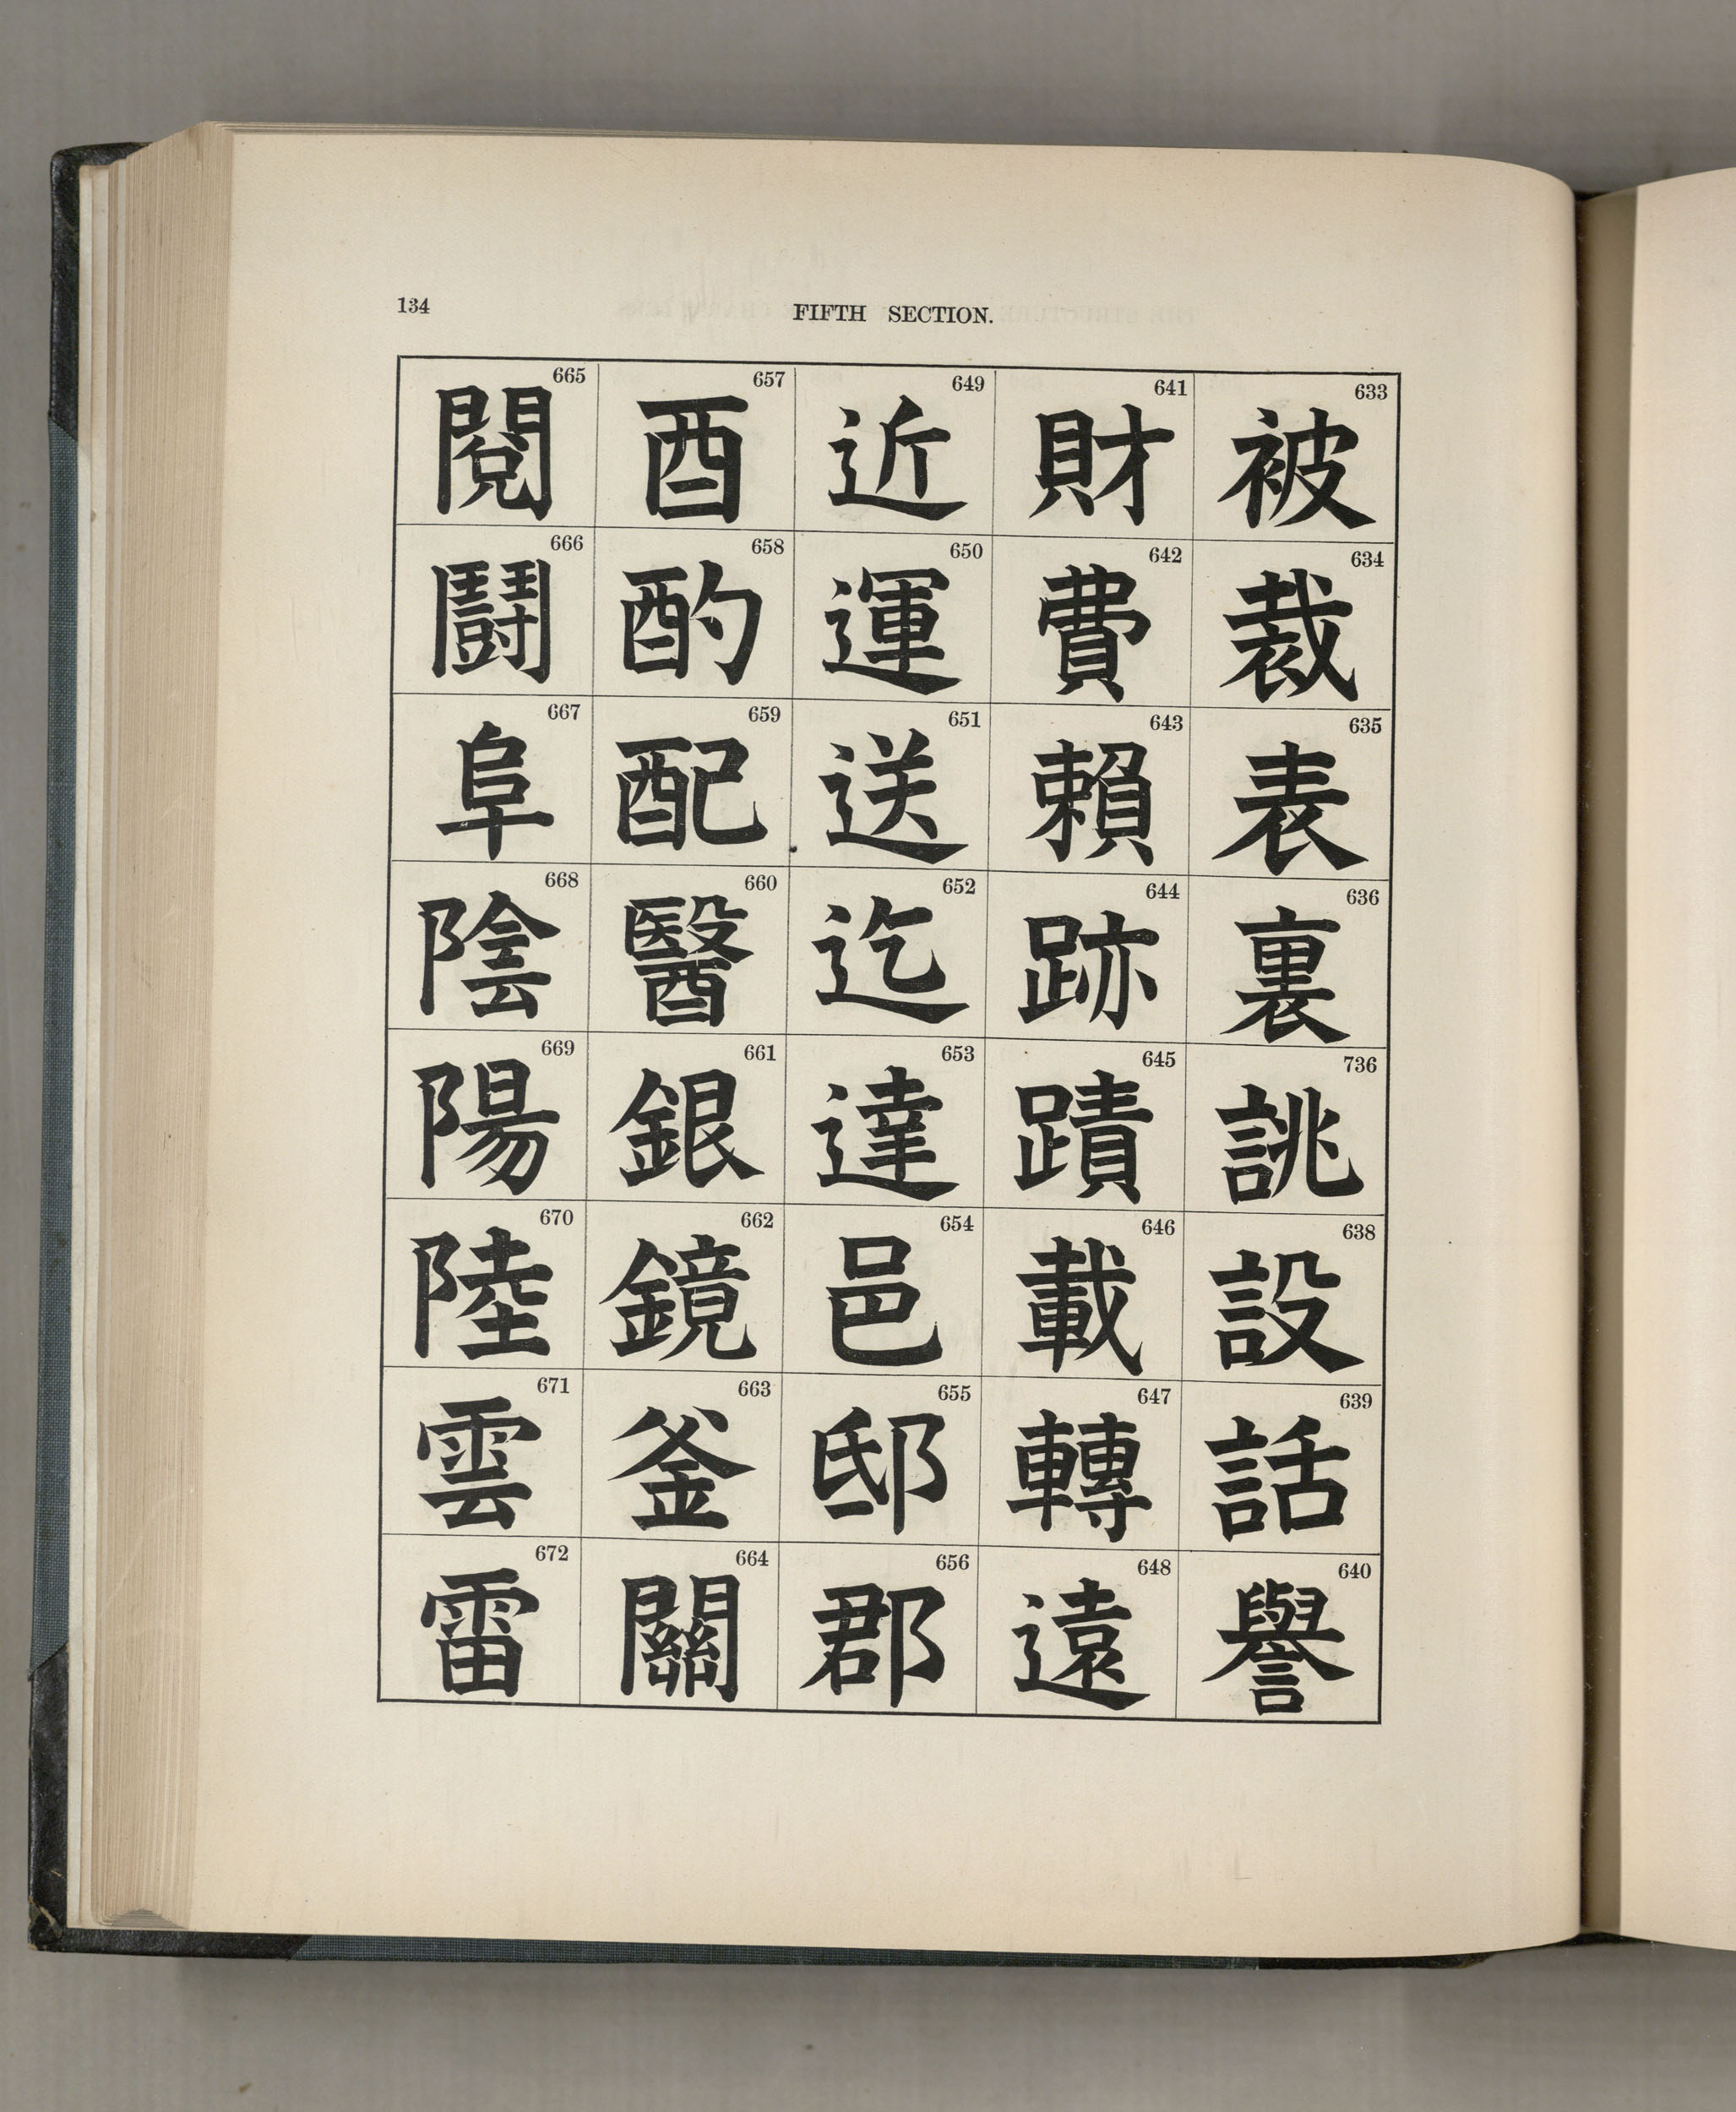 134
FIFTH SECTION.
633 被
634 裁
635 表
636 裏
736 誂
638 設
639 話
640 譽
641 財
642 費
643 賴
644 跡
645 蹟
646 載
647 轉
648 遠
649 近
650 運
651 送
652 迄
653 達
654 邑
655 邸
656 郡
657 酉
658 酌
659 配
660 醫
661 銀
662 鏡
663 釜
664 關
665 閱
666 鬪
667 阜
668 陰
669 陽
670 陸
671 雲
672 雷